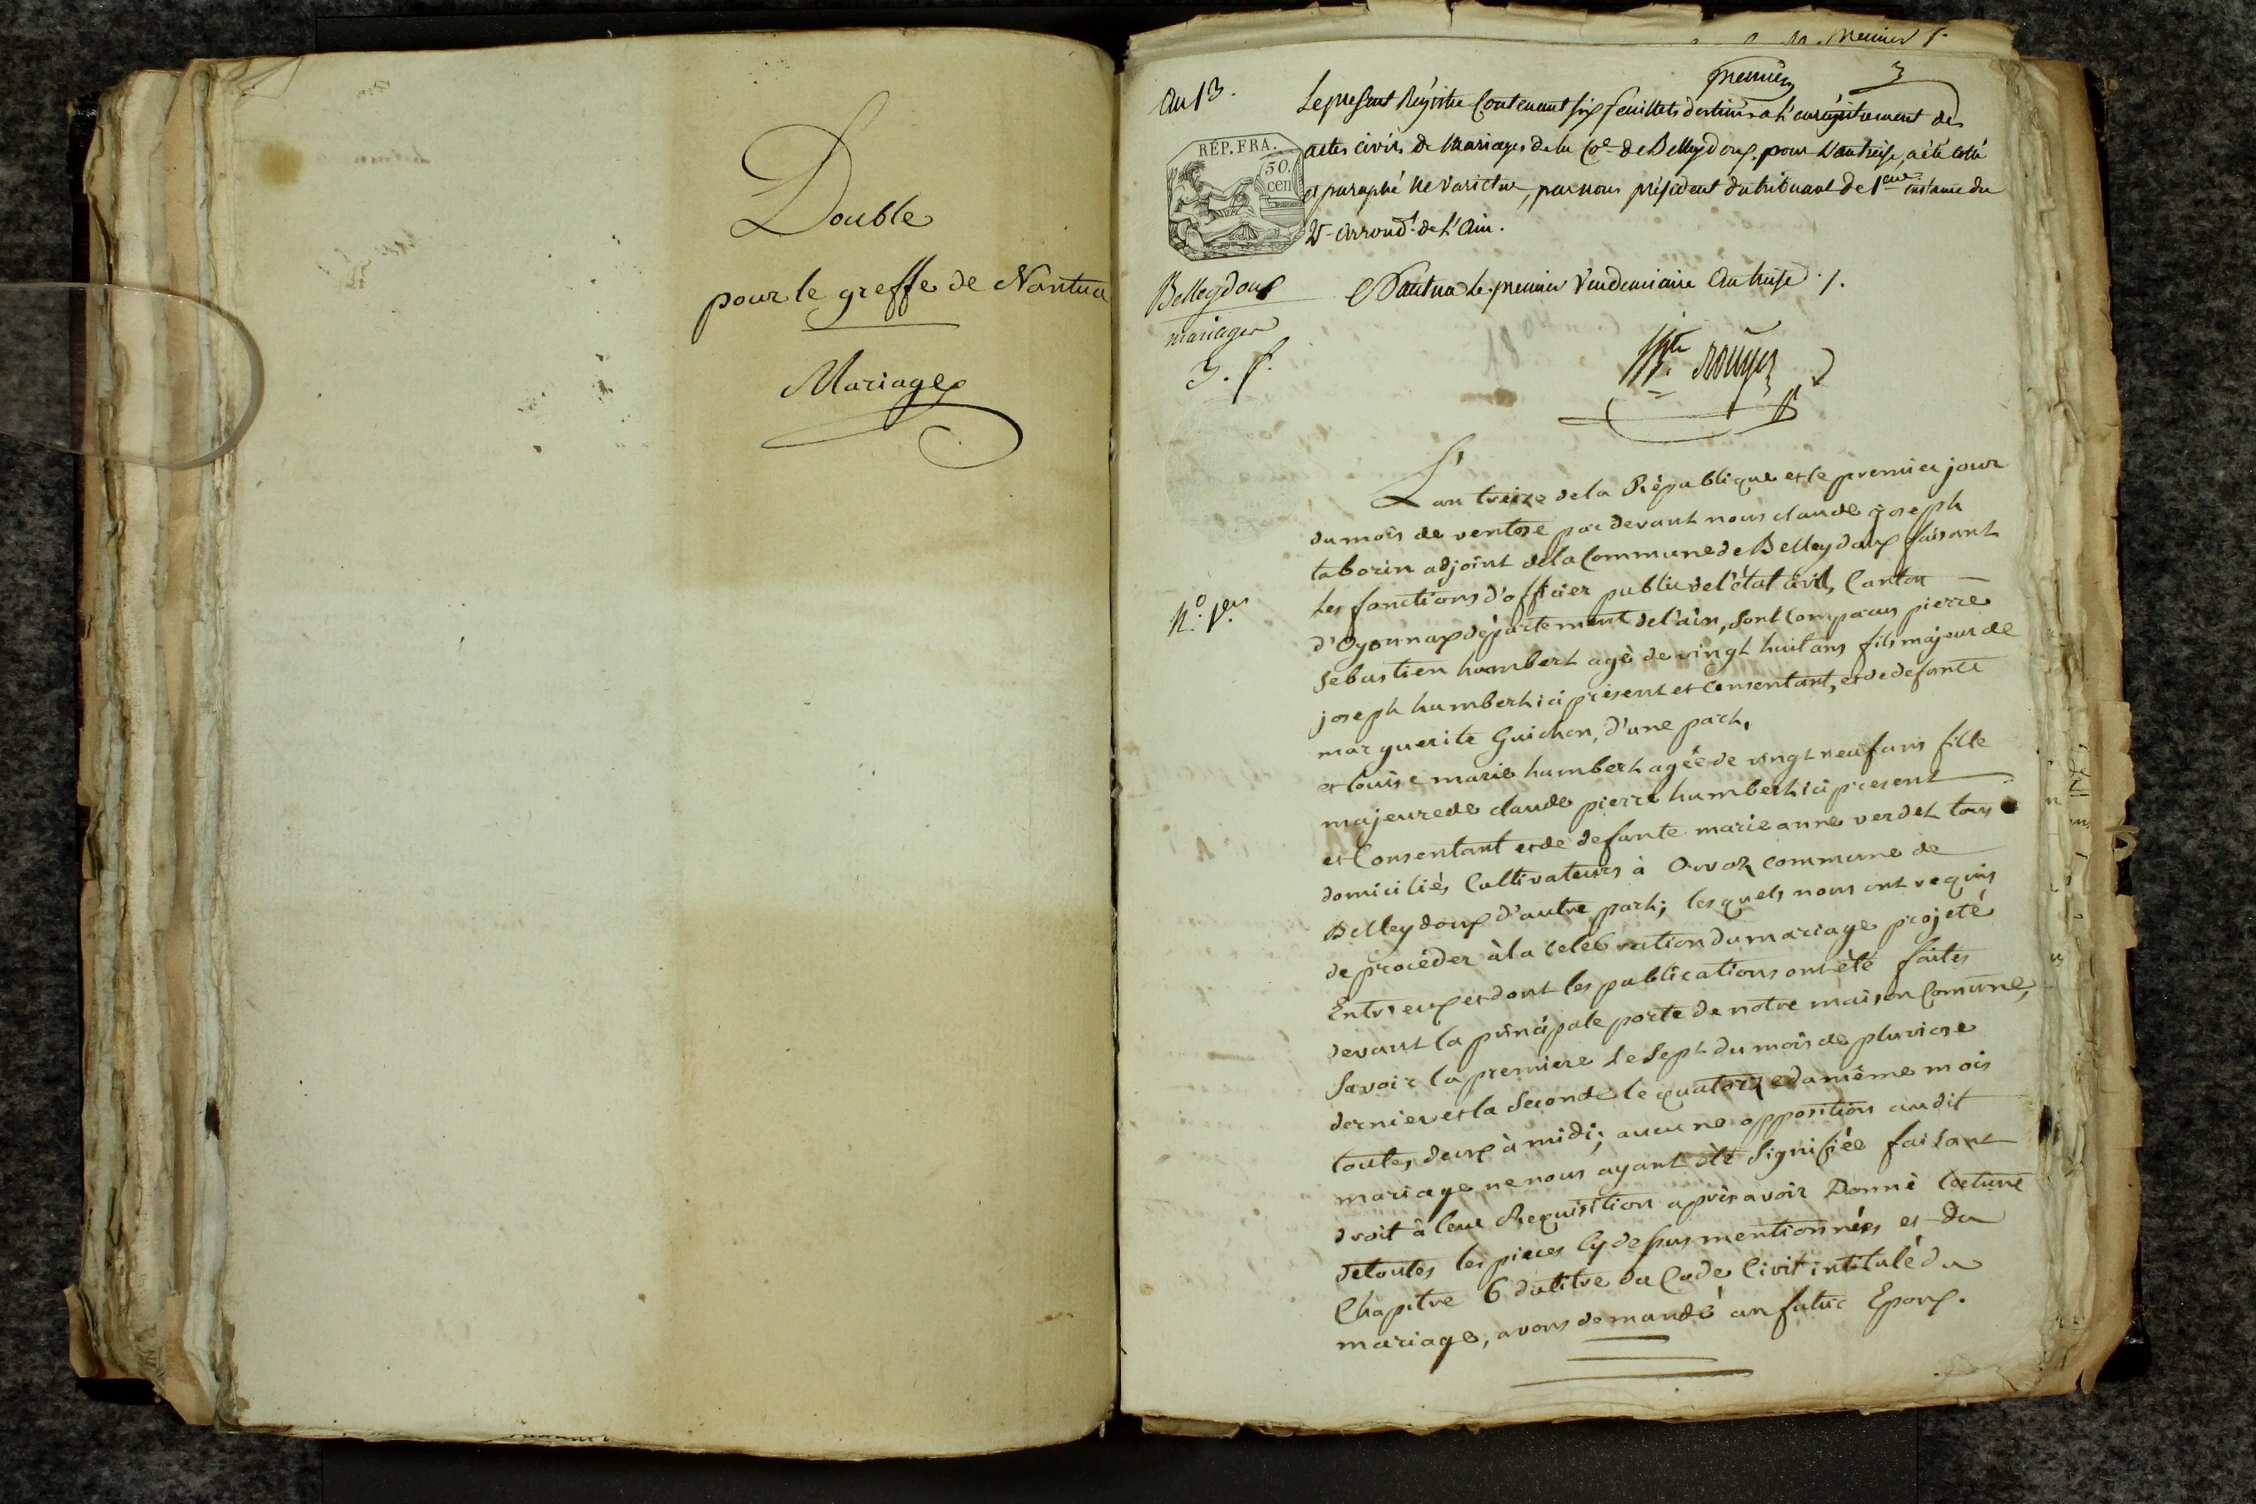 Double
pour le greffe de Nantua
Mariages
premier
an 13.
Le present Régistre Contenant six feuillets destinés a l'enrégistrement des
actes civils de Mariages de la Coe. de Belleydoux. pour l'an treise, a été cotté
et paraphé ne Varietur, par nous président du tribunal de 1ere. instance du
2e. arrond.t de l'Ain.
RÉP. FRA.
50.
cen
Belleydoux
mariages
3. f.
a Nantua Le premier Vendemiaire an treise ./.
rouyer
N.° 1er.
L'an treize de la République et le premier jour
du mois de ventose par devant nous claude joseph
taborin adjoint de la Commune de Belleydoux faisant
les fonctions d'officier public de l'état civil, Canton
d'Oyonnax département de l'ain, sont comparus pierre
Sebastien humbert agé de vingt huit ans fils majeur de
joseph humbert ici présent et consentant, et de defante
marguerite Guichon, d'une part,
et louise marie humbert agée de vingt neuf ans fille
majeure de claude pierre humbert ici present
et Consentant et de defante marie anne verdet tous
domiciliés Cultivateurs à Orvoz commune de
Belleydoux d'autre part; lesquels nous ont requis
de procéder à la celébration du mariage projeté
Entr'eux et dont les publications ont été faites
devant la principale porte de notre maison Comune,
Savoir la premiere le Sept du mois de pluviose
dernier et la Seconde le quatorze du même mois
toutes deux à midi; aucune opposition audit
mariage ne nous ayant été Signifiée faisant
droit à leur Requisition après avoir Donné lecture
de toutes les pieces Cy dessus mentionnées et du
Chapitre 6 du titre du Code Civil intitulé du
mariage, avons demandé au futur Epoux.